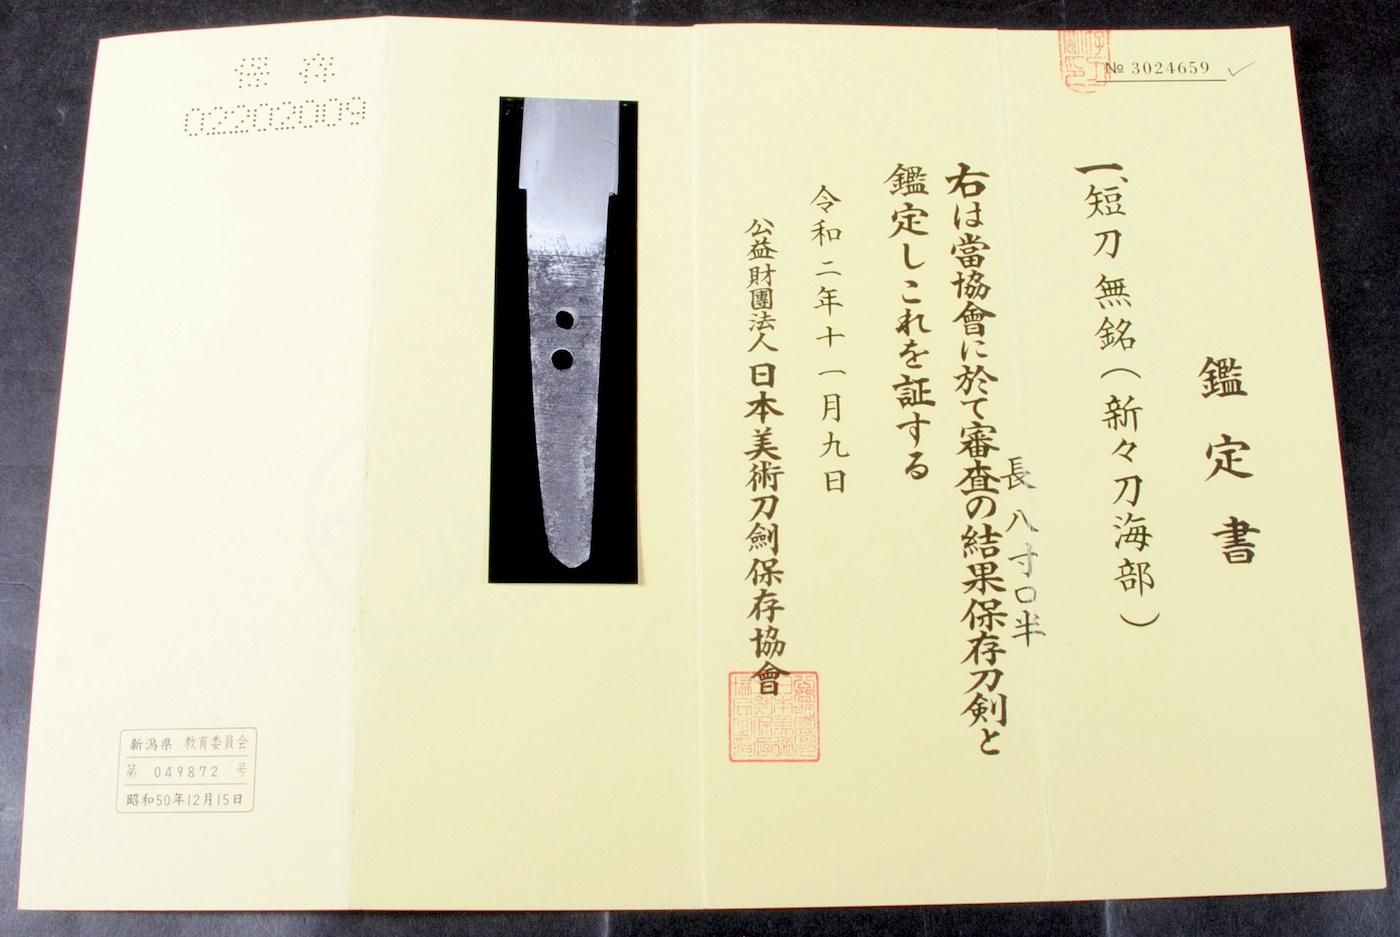 № 3024659
鑑定書
一、短刀 無銘(新々刀海部)
長八寸〇半
右は當協會に於て審査の結果保存刀剣と
鑑定しこれを証する
令和二年十一月九日
公益財團法人 日本美術刀劍保存協會
保存
02202009
新潟県 教育委員会
第 049872 号
昭和50年12月15日